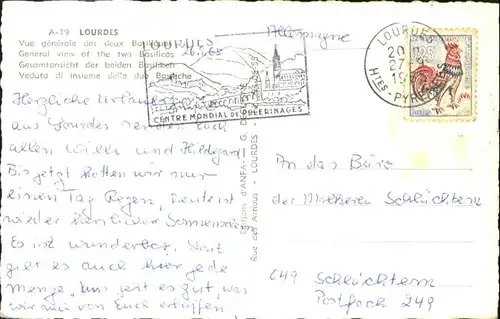 A-19 LOURDES
Vue générale des deux Basiliques
General view of the two Basilicas
Gesamtansicht der beiden Basiliken
Veduta di insieme della due Basiliche
LOURDES
CENTRE MONDIAL DE PELERINAGES
Allemagne
LOURDES
20
27-8
19
HTES-PYRENEES
Herzliche Urlaubs
aus Lourdes senden Euch
allen Willi und Hildegard
Bis jetzt hatten wir nur
einen Tag Regen, heute ist
wieder herrlicher Sonnenschein
Es ist wunderbar. Nur
gibt es auch hier jede
Menge, uns geht es gut, was
wir auch von Euch erhoffen
Rue des Arrious - LOURDES
An das Büro
der Schlüchtern
649 Schlüchtern
Postfach 249